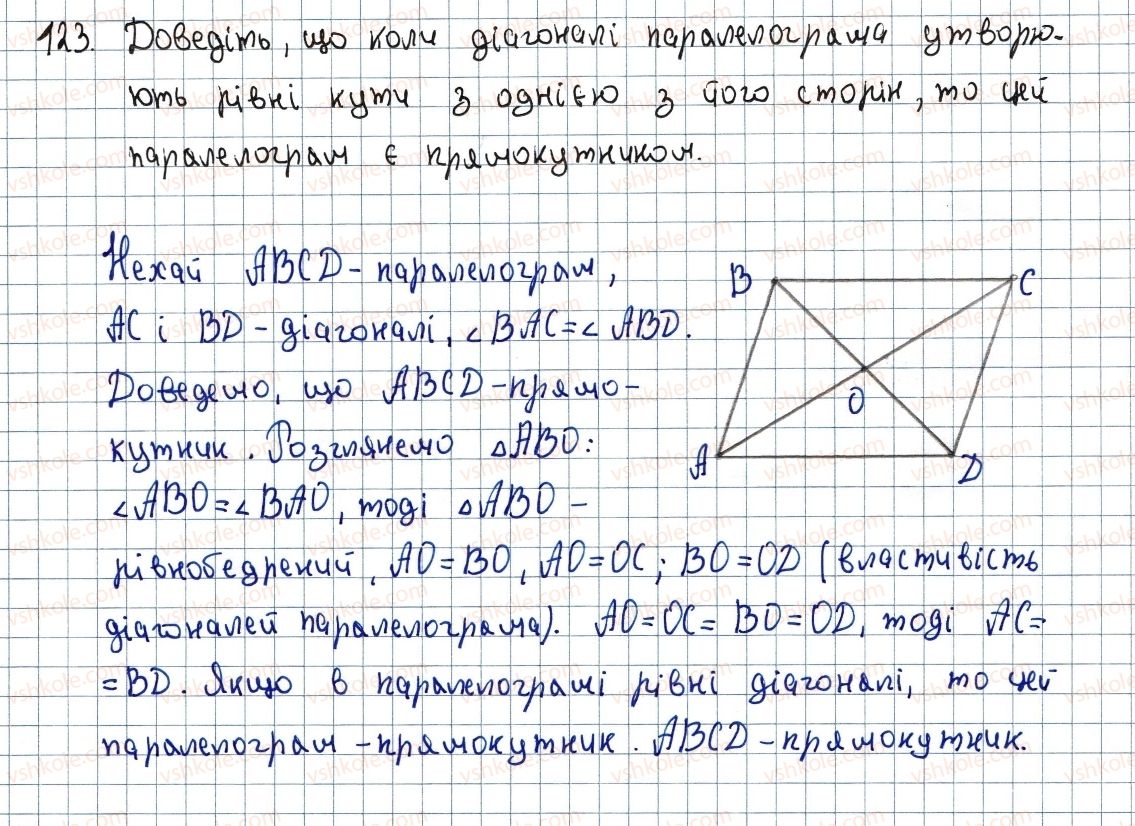 123. Доведіть, що коли діагоналі паралелограма утворю-
ють рівні кути з однією з його сторін, то цей
паралелограм є прямокутником.
Нехай ABCD - паралелограм,
AC і BD - діагоналі, ∠BAC=∠ABD.
Доведемо, що ABCD - прямо-
кутник. Розглянемо △ABO:
∠ABO=∠BAO, тоді △ABO -
рівнобедрений, AO=BO, AO=OC; BO=OD (властивість
діагоналей паралелограма). AO=OC=BO=OD, тоді AC=
=BD. Якщо в паралелограмі рівні діагоналі, то цей
паралелограм - прямокутник. ABCD - прямокутник.
B
C
O
A
D
vshkole.com